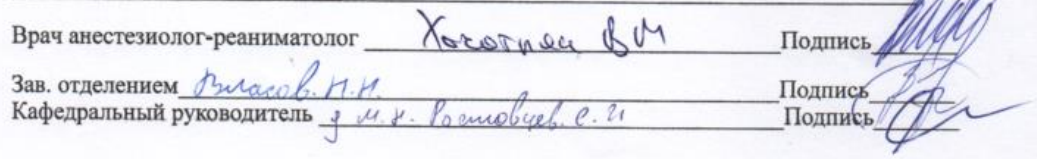 Врач анестезиолог-реаниматолог Хочотряя ВМ Подпись
Зав. отделением Власов. Н.Н. Подпись
Кафедральный руководитель д м.н. Ростовцев. С. И Подпись